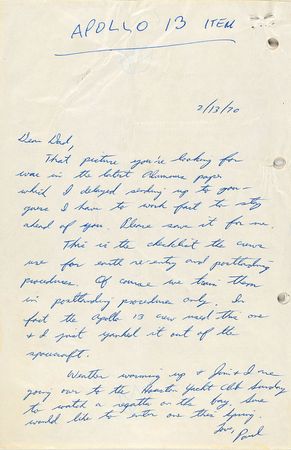 APOLLO 13 ITEM
2/13/70
Dear Dad,
That picture you're looking for
was in the latest Alumnus paper
which I delayed sending up to you -
guess I have to work fast to stay
ahead of you. Please save it for me.
This is the checklist the crews
use for earth re-entry and postlanding
procedures. Of course we train them
in postlanding procedures only. In
fact the Apollo 13 crew used this one
& I just yanked it out of the
spacecraft.
Weather warming up & Joni & I are
going over to the Houston Yacht Club Sunday
to watch a regatta on the bay. Sure
would like to enter one this spring.
Love,
Paul